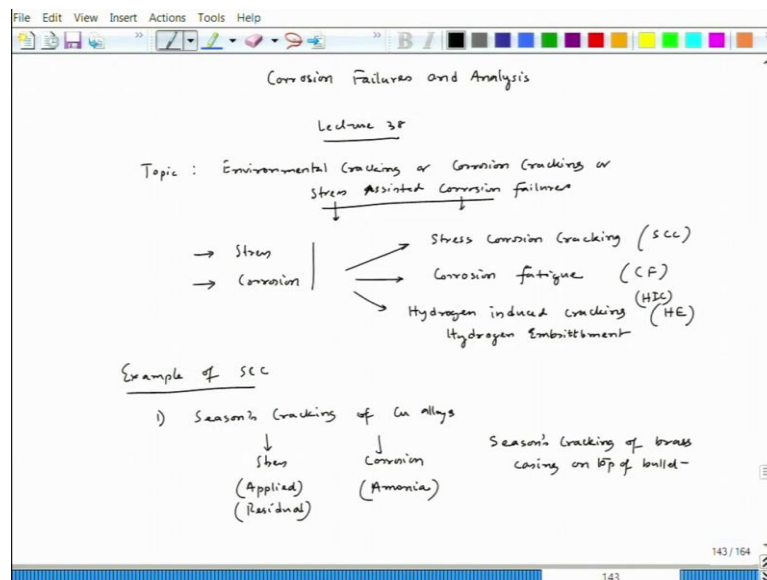 File Edit View Insert Actions Tools Help
Corrosion Failures and Analysis
Lecture 38
Topic : Environmental Cracking or Corrosion Cracking or
Stress Assisted Corrosion failures
→ Stress
→ Corrosion
Stress Corrosion Cracking (SCC)
Corrosion fatigue (CF)
(HIC)
Hydrogen induced cracking (HE)
Hydrogen Embrittlment
Example of SCC
1) Season's Cracking of Cu alloys
Stress Corrosion
(Applied) (Amonia)
(Residual)
Season's Cracking of brass
casing on top of bulled-
143 / 164
143